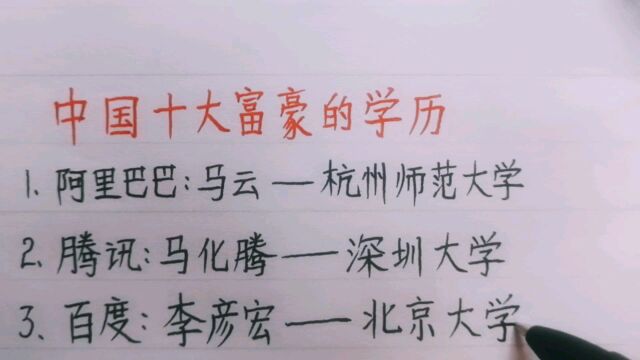 中国十大富豪的学历
1. 阿里巴巴:马云——杭州师范大学
2. 腾讯:马化腾——深圳大学
3. 百度:李彦宏——北京大学